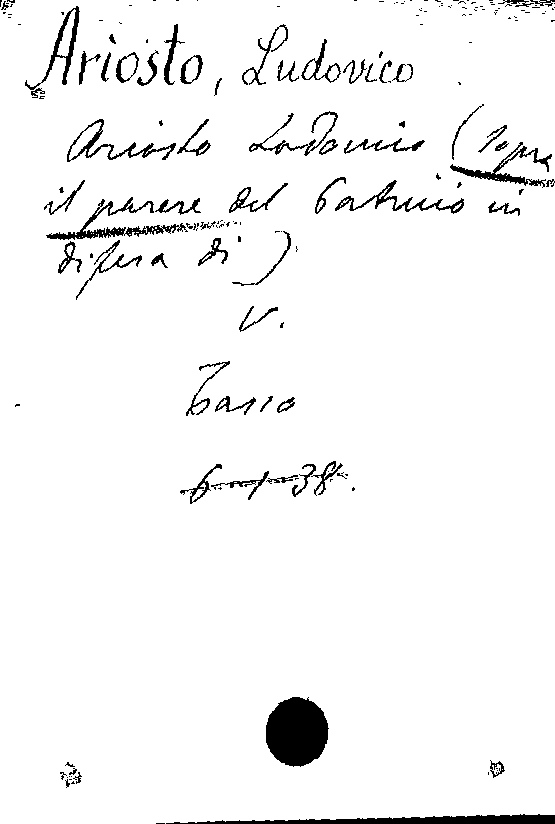 Ariosto, Ludovico
Ariosto Lodovico (sopra
il parere del Patricio in
difesa di)
V.
Tasso
6-1-38.